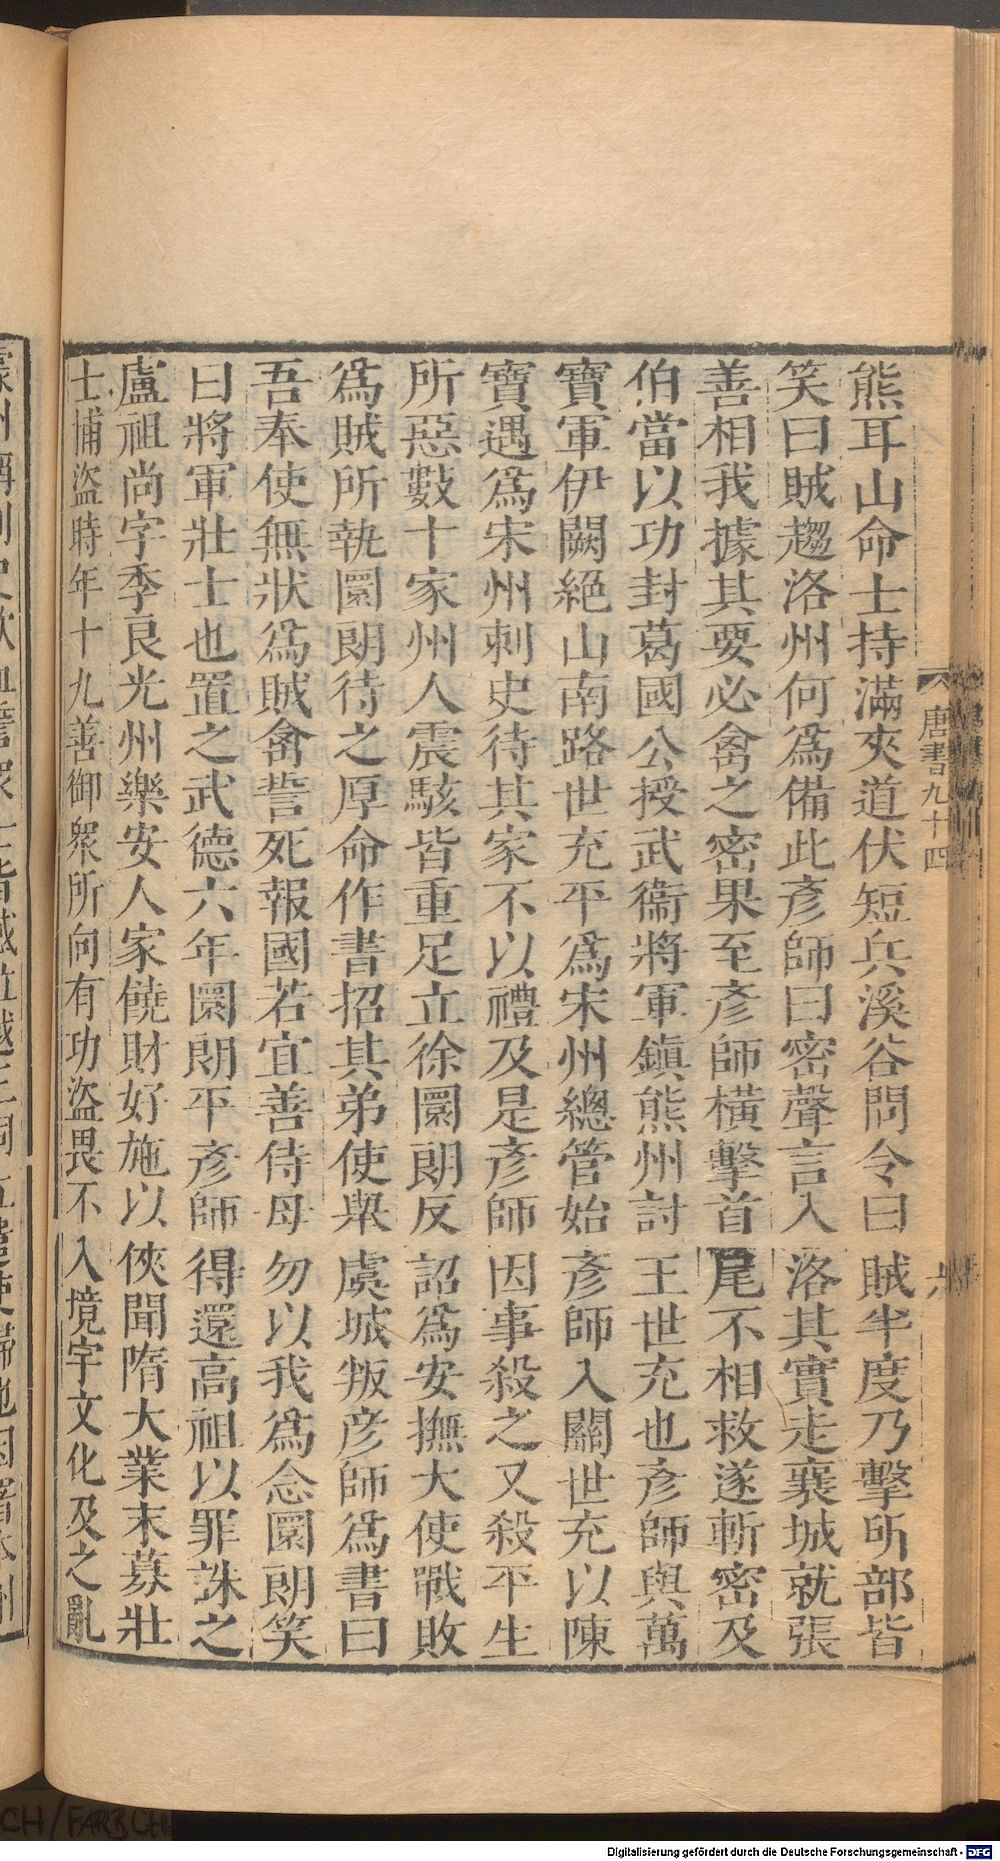 熊耳山命士持滿夾道伏短兵溪谷間令曰賊半度乃擊所部皆
笑曰賊趨洛州何爲備此彥師曰密聲言入洛其實走襄城就張
善相我據其要必禽之密果至彥師橫擊首尾不相救遂斬密及
伯當以功封葛國公授武衞將軍鎮熊州討王世充也彥師與萬
寶軍伊闕絕山南路世充平爲宋州總管始彥師入關世充以陳
寶遇爲宋州刺史待其家不以禮及是彥師因事殺之又殺平生
所惡數十家州人震駭皆重足立徐圜朗反詔爲安撫大使戰敗
爲賊所執圜朗待之厚命作書招其弟使舉虞城叛彥師爲書曰
吾奉使無狀爲賊禽誓死報國若宜善侍母勿以我爲念圜朗笑
曰將軍壯士也置之武德六年圜朗平彥師得還高祖以罪誅之
盧祖尚字季良光州樂安人家饒財好施以俠聞隋大業末募壯
士捕盜時年十九善御眾所向有功盜畏不入境宇文化及之亂
唐書九十四
六
Digitalisierung gefördert durch die Deutsche Forschungsgemeinschaft - DFG